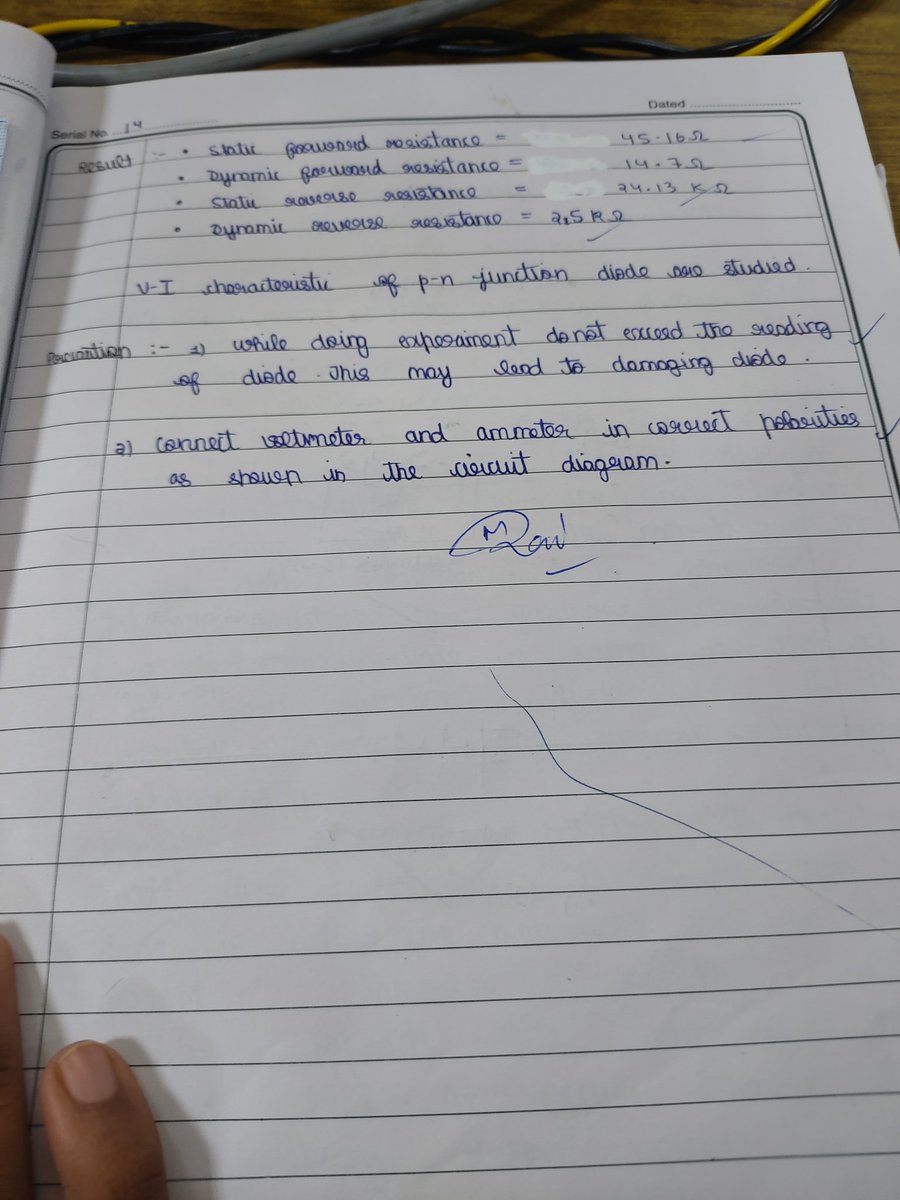 Dated
Serial No. 14
Result :- • Static forward resistance = 45.16Ω
• Dynamic forward resistance = 14.7Ω
• Static reverse resistance = 24.13 KΩ
• Dynamic reverse resistance = 2.5 KΩ
V-I characteristic of p-n junction diode are studied.
:- 1) while doing experiment do not exceed the reading
of diode. This may lead to damaging diode.
2) connect voltmeter and ammeter in correct polarities
as shown in the circuit diagram.